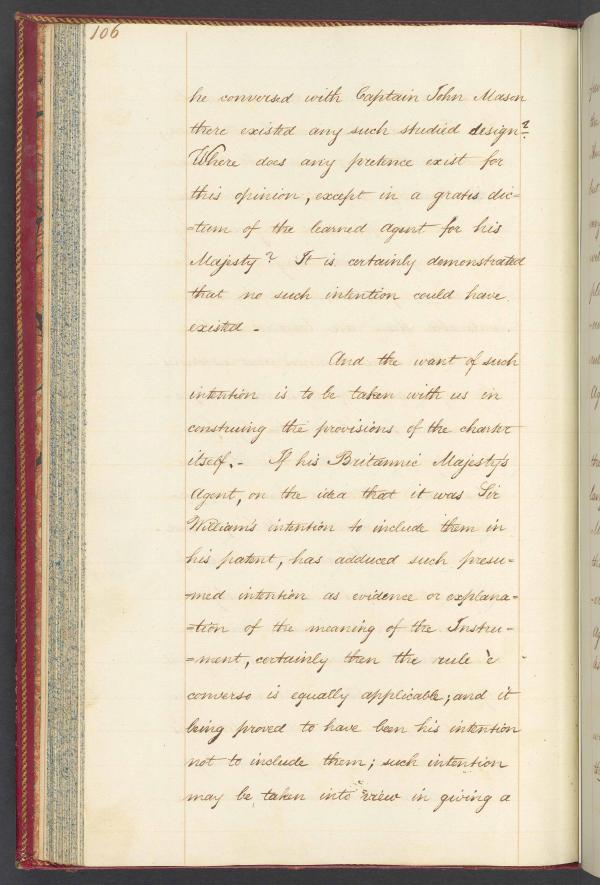 106
he conversed with Captain John Mason
there existed any such studied design?
Where does any pretence exist for
this opinion, except in a gratis dic=
=tum of the learned agent for his
Majesty? It is certainly demonstrated
that no such intention could have
existed -
And the want of such
intention is to be taken with us in
construing the provisions of the charter
itself. - If his Britannic Majesty's
Agent, on the idea that it was Sir
William's intention to include them in
his patent, has adduced such presu=
=med intention as evidence or explana=
=tion of the meaning of the Instru-
=ment, certainly then the rule è
converso is equally applicable; and it
being proved to have been his intention
not to include them; such intention
may be taken into view in giving a